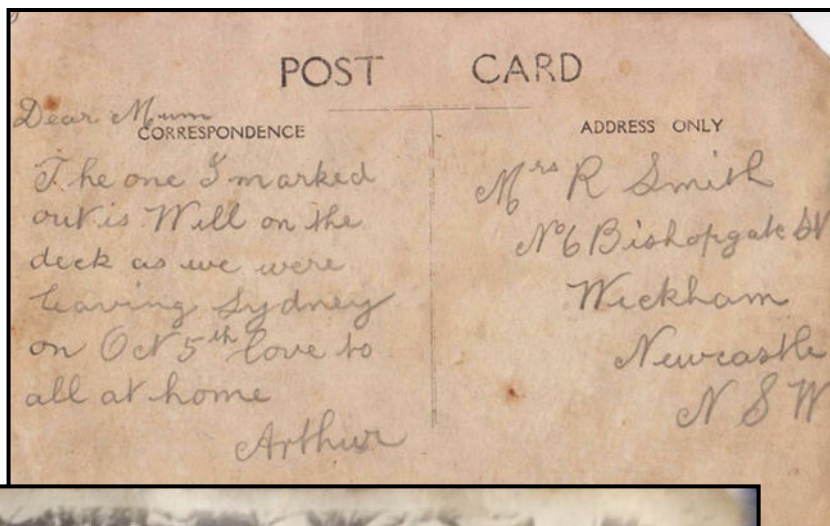 POST CARD
Dear Mum
CORRESPONDENCE
The one I marked
out is Will on the
deck as we were
leaving Sydney
on Oct 5th love to
all at home
Arthur
ADDRESS ONLY
Mrs R Smith
No 6 Bishopgate St
Wickham
Newcastle
N S W